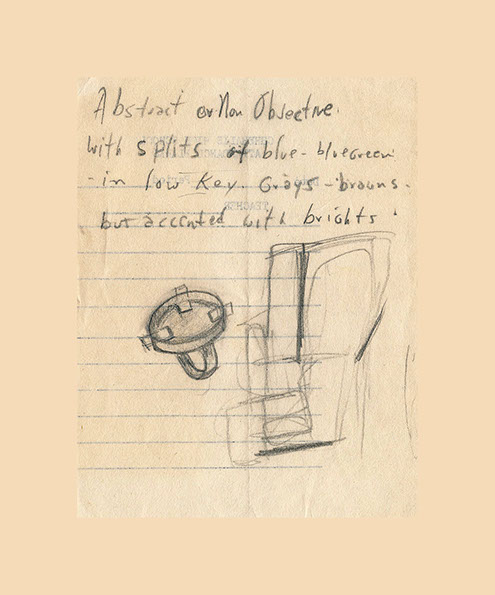 Abstract or Non Objective.
with splits of blue-bluegreen
-in low key. Grays-browns-
but accented with brights.
TEACHER